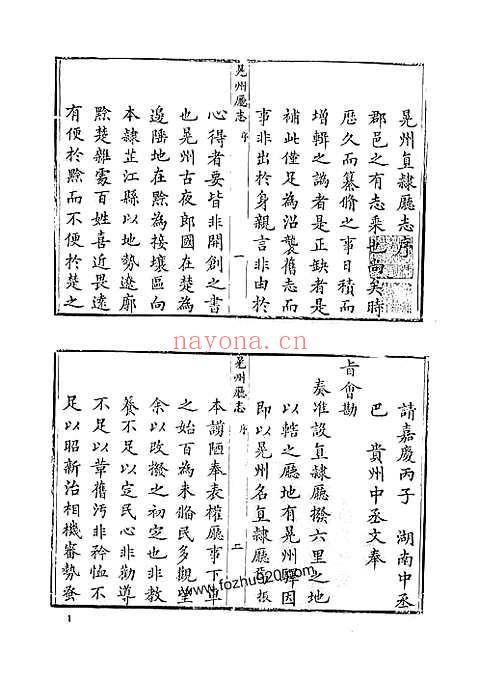 晃州直隸廳志序
郡邑之有志乘也尚矣時
歷久而纂脩之事日積而
增輯之譌者是正缺者是
補此僅足為沿襲舊志而
事非出於身親言非由於
晃州廳志 序 一
心得者要皆非開創之書
也晃州古夜郎國在楚為
邊陲地在黔為接壤區向
本隸芷江縣以地勢遼廓
黔楚雜處百姓喜近畏遠
有便於黔而不便於楚之
請嘉慶丙子 湖南中丞
巴 貴州中丞文奉
旨會勘
奏准設直隸廳撥六里之地
以轄之廳地有晃州驛因
即以晃州名直隸廳焉振
晃州廳志 序 二
本謭陋奉表權廳事下車
之始百為未脩民多觀望
余以改撥之初定也非教
養不足以定民心非勸導
不足以革舊污非矜恤不
足以昭新治相機審勢蚤
nayona.cn
www.fozhu920.com
1